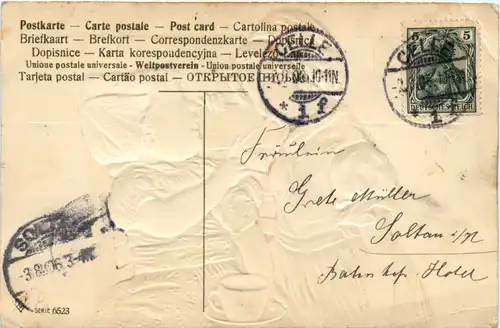 Postkarte — Carte postale — Post card — Cartolina postale
Briefkaart — Brefkort — Correspondenzkarte — Dopisnice
Dopisnice — Karta korespondencyjna — Levelező
Unione postale universale - Weltpostverein - Union postale universelle
Tarjeta postal — Cartão postal — ОТКРЫТОЕ
CELLE
10-11N.
* 1 f
CELLE
5
DEUTSCHES REICH
* 1
Fräulein
Grete Müller
Soltau i/H
Bahnhof-Hotel
SOLTAU
-3.8.06.3-4N
SERIE 6523